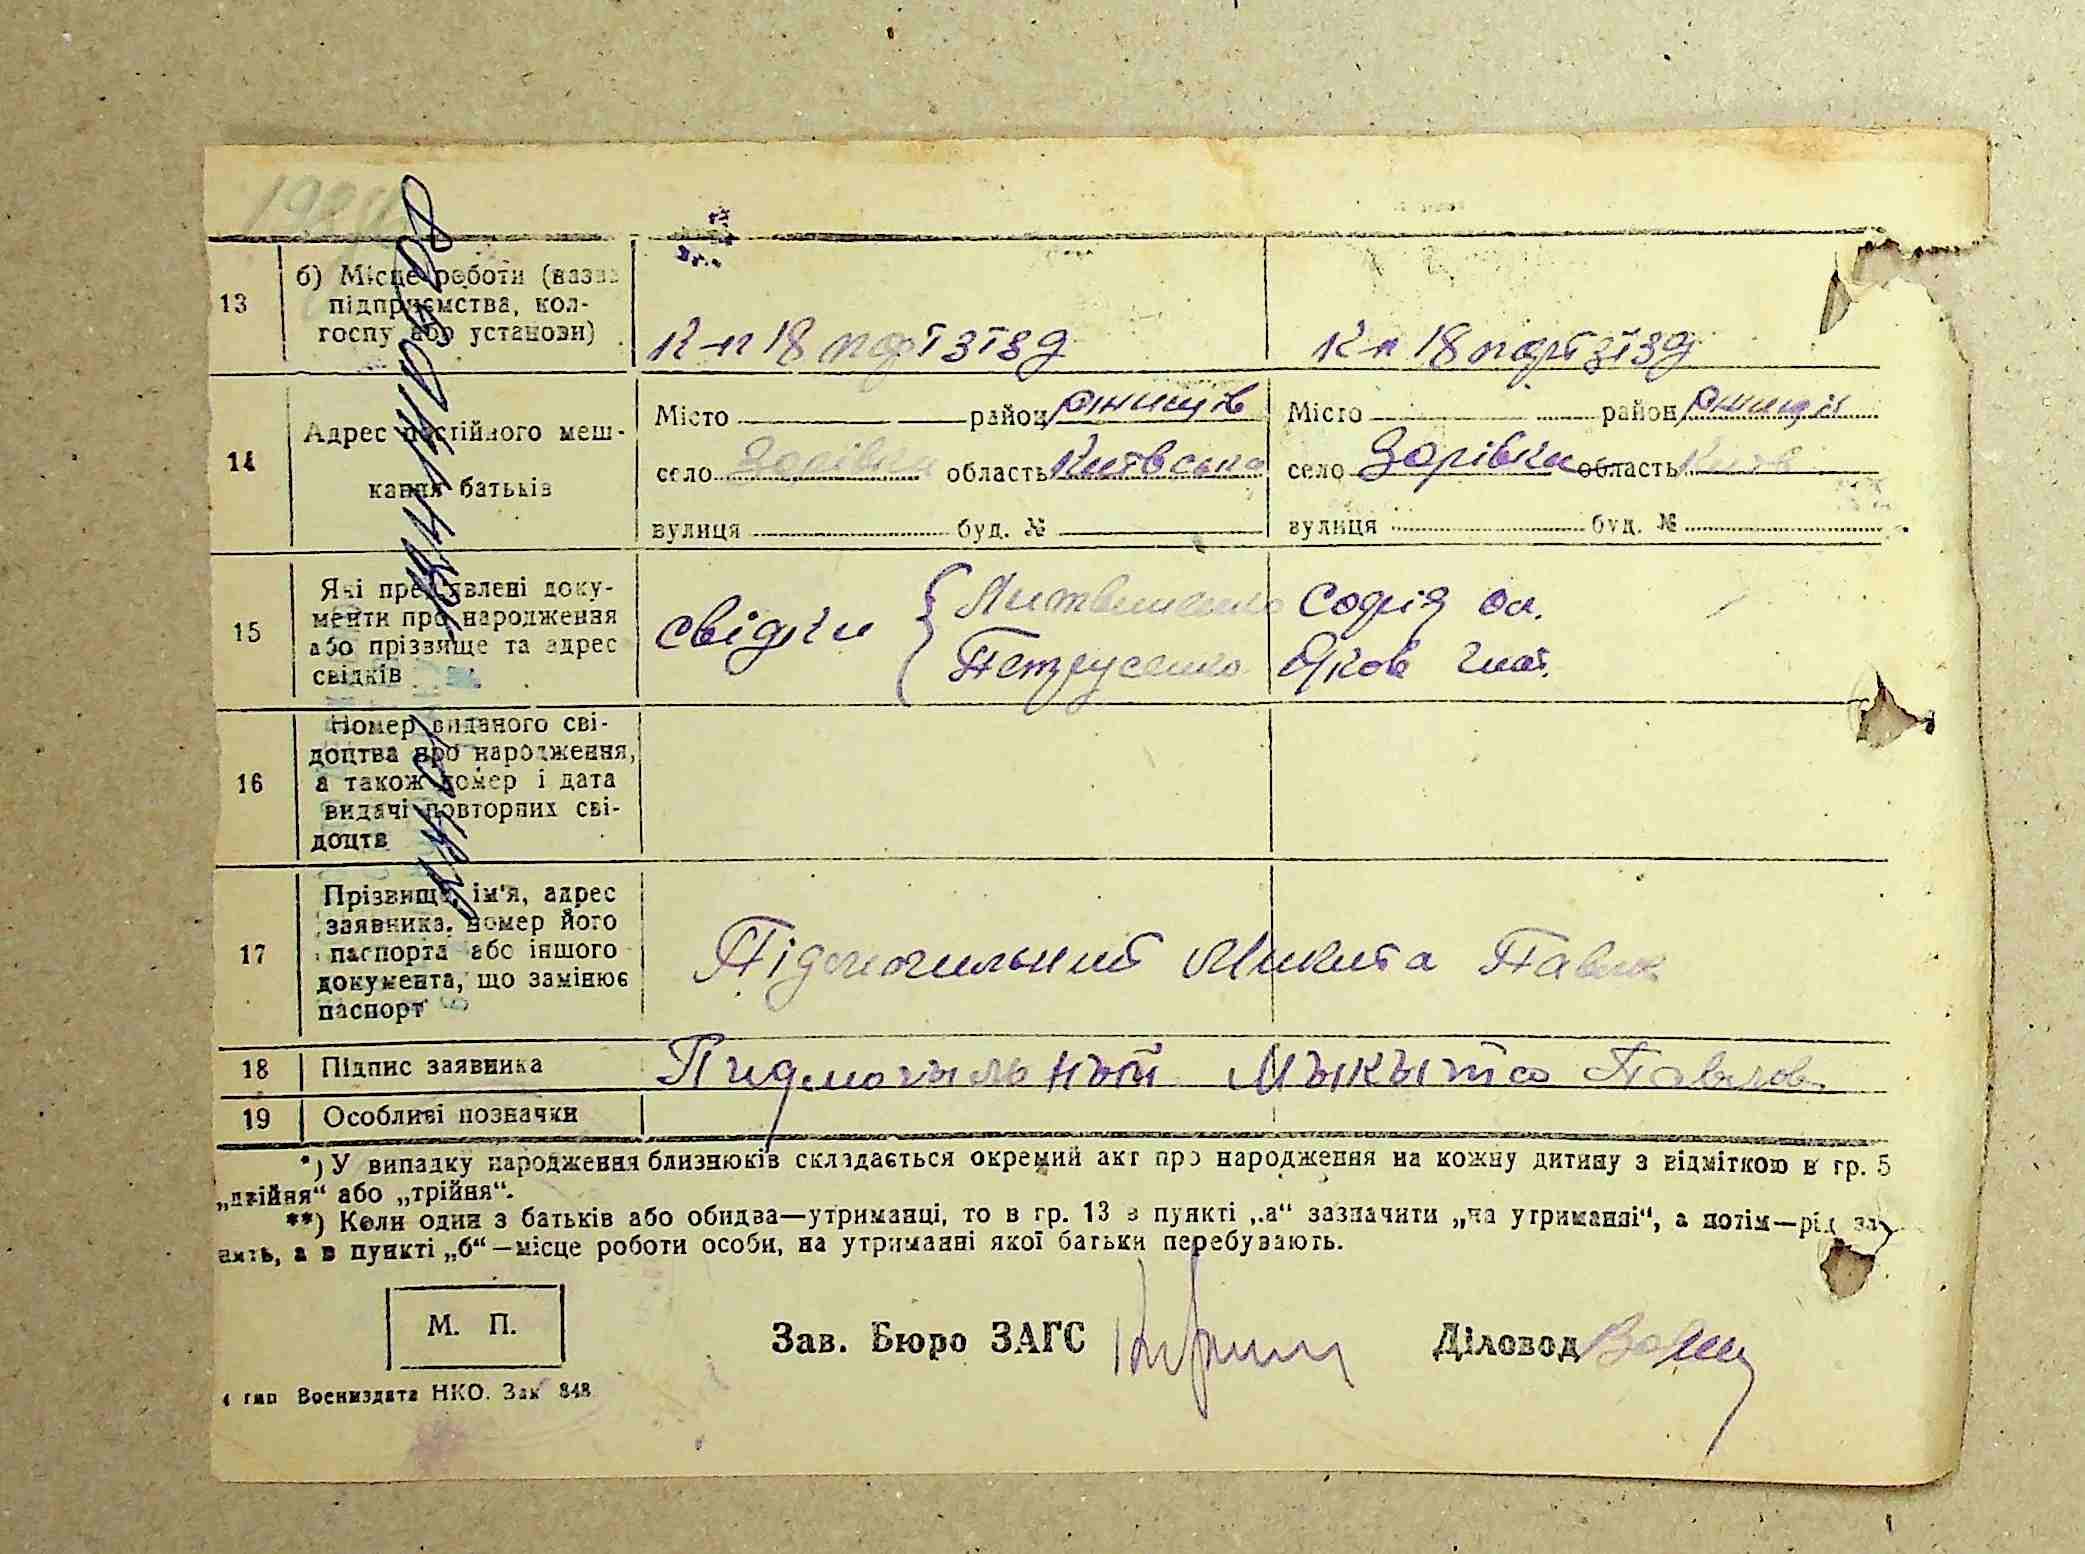 13
б) Місце роботи (назва
підприємства, кол-
госпу або установи)
К-п 18 партзїзд
К-п 18 партзїзд
14
Адрес постійного меш-
кання батьків
Місто район Ржищів
село Зорівка область Київська
вулиця буд. №
Місто район Ржищів
село Зорівка область Київ
вулиця буд. №
15
Які пред'явлені доку-
менти про народження
або прізвище та адрес
свідків
свідки { Литвиненко Софія Ол.
Петрусенко Яков Гнат.
16
Номер виданого сві-
доцтва про народження,
а також номер і дата
видачі повторних сві-
доцтв
17
Прізвище, ім'я, адрес
заявника, номер його
паспорта або іншого
документа, що замінює
паспорт
Підмогильний Микита Павл.
18
Підпис заявника
Пидмогыльный Мыкыта Павлов.
19
Особливі позначки
*) У випадку народження близнюків складається окремий акт про народження на кожну дитину з відміткою в гр. 5
„двійня“ або „трійня“.
**) Коли один з батьків або обидва—утриманці, то в гр. 13 в пункті „а“ зазначити „на утриманні“, а потім—рід за-
нять, а в пункті „б“—місце роботи особи, на утриманні якої батьки перебувають.
М. П.
Зав. Бюро ЗАГС
Діловод
4 тип Воениздата НКО. Зак 848